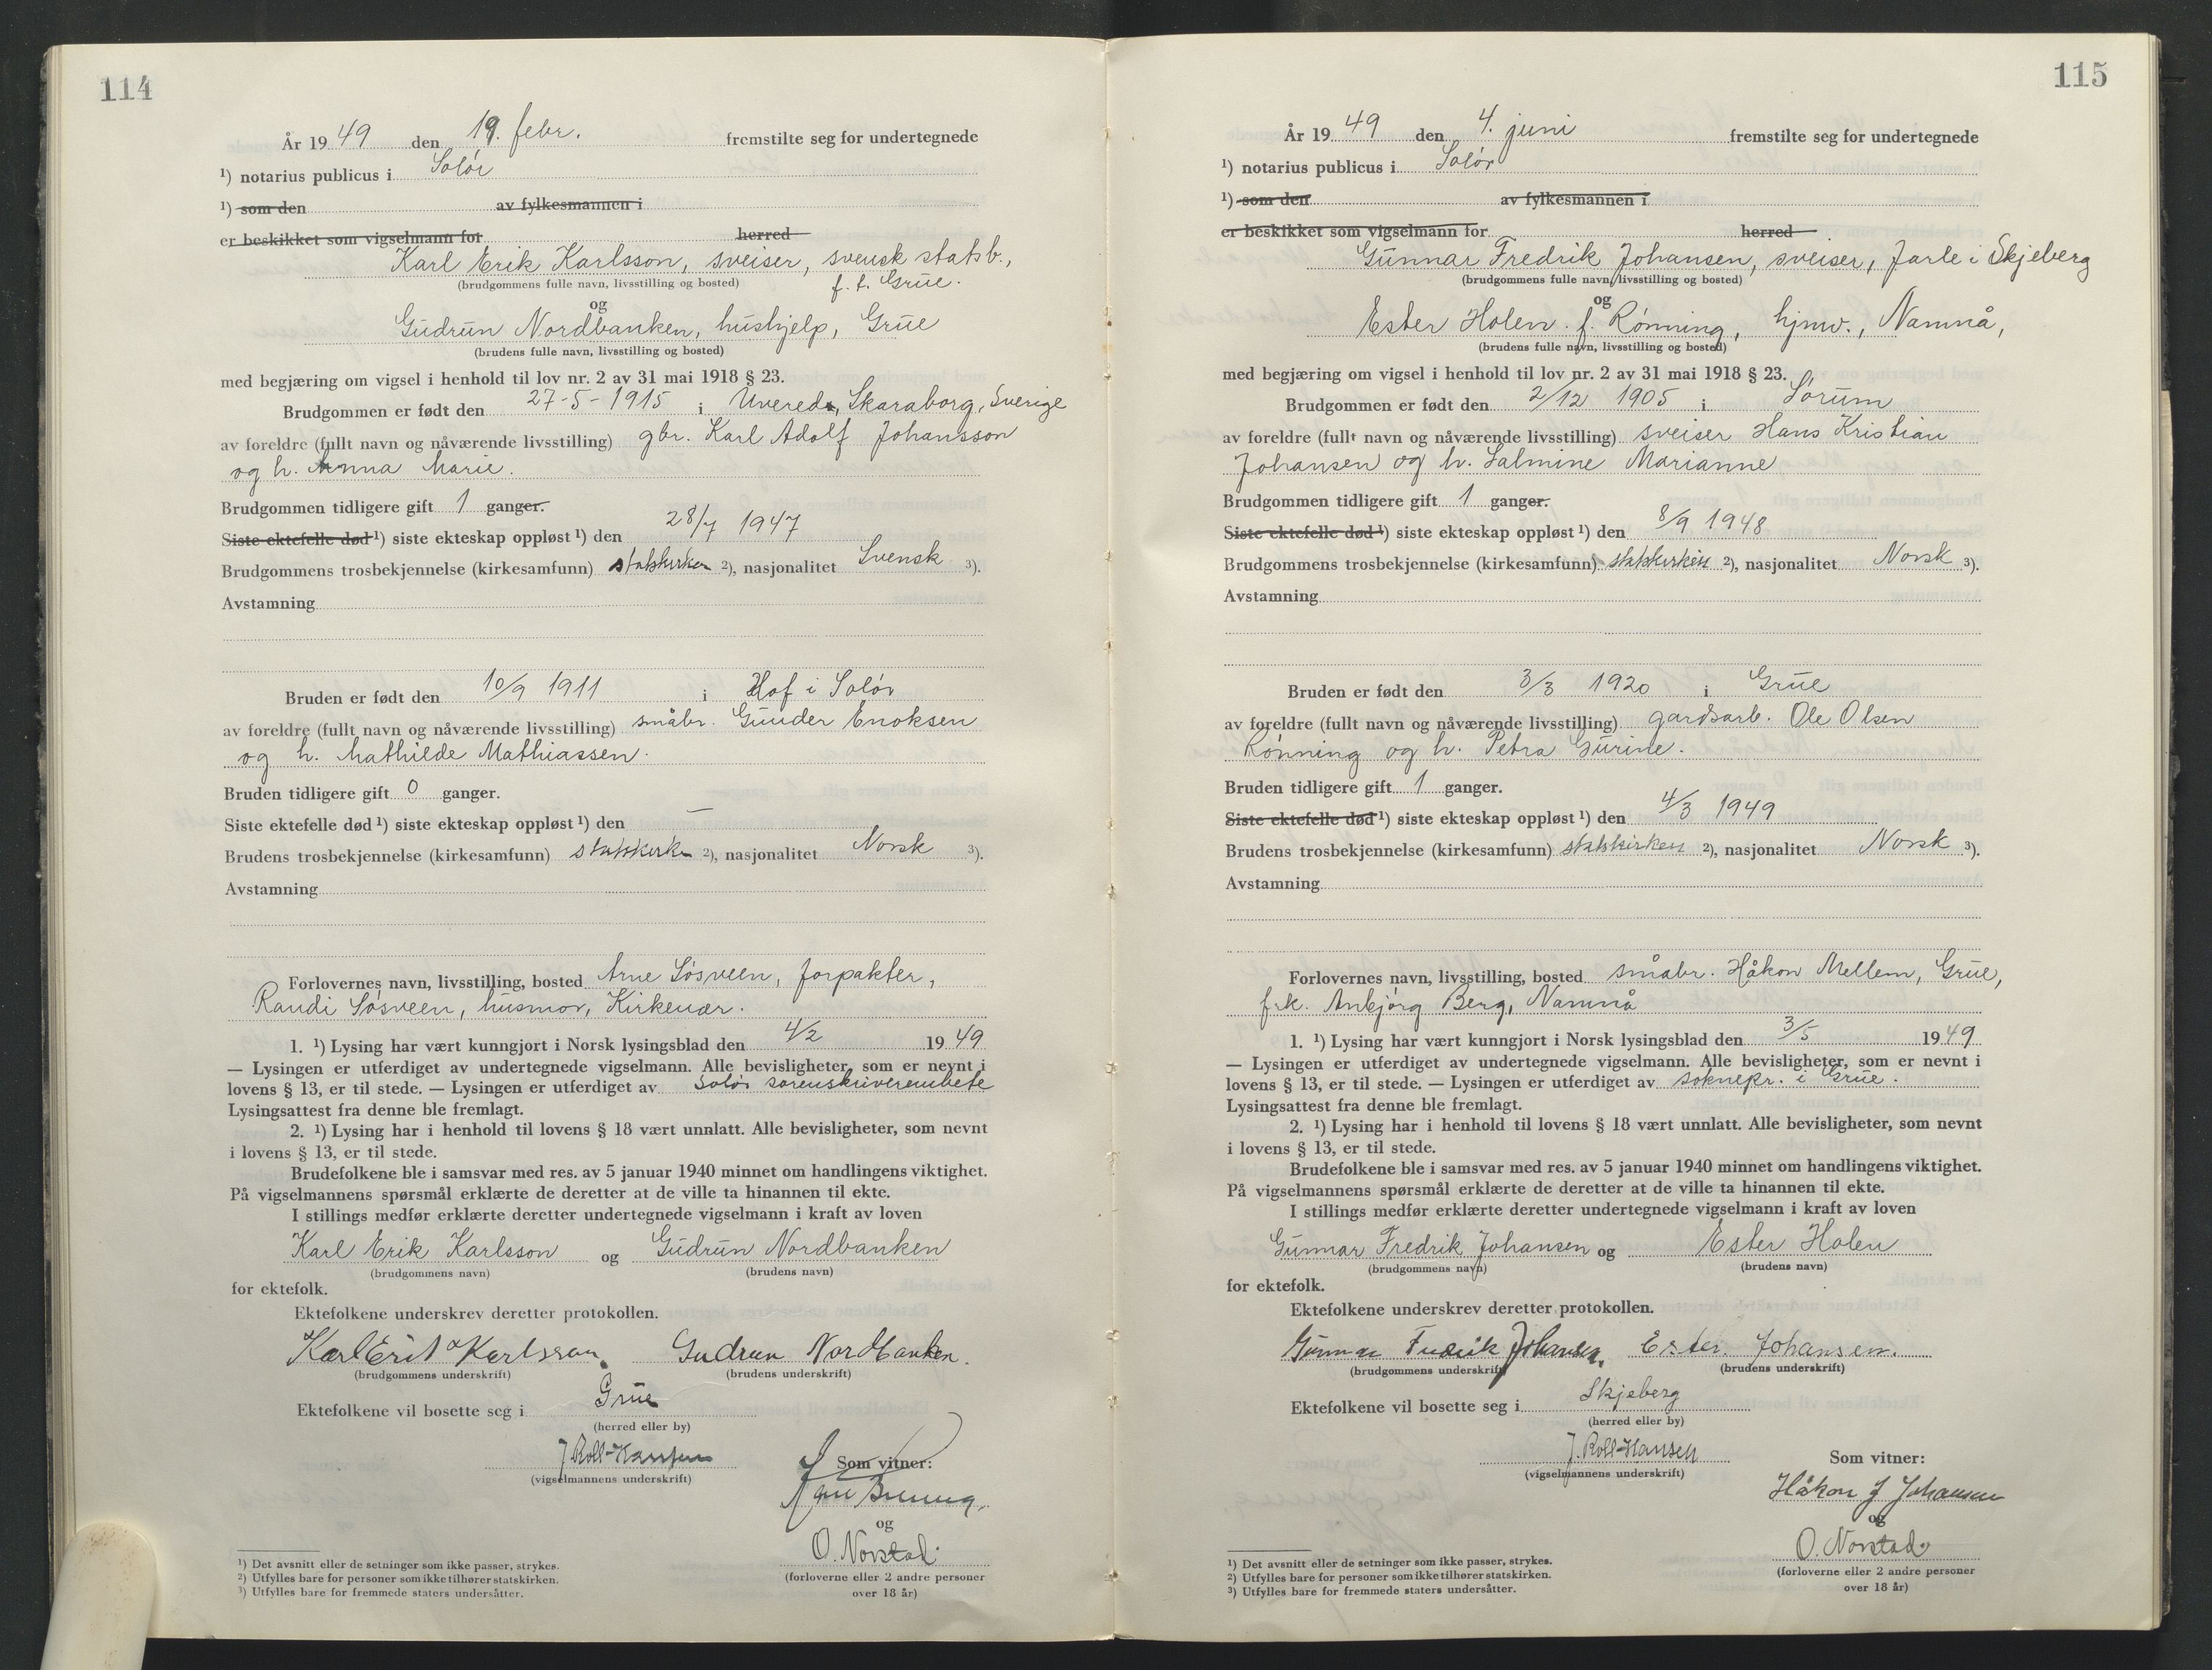 114
År 1949 den 19. febr. fremstilte seg for undertegnede
¹) notarius publicus i Solør
¹) som den av fylkesmannen i
er beskikket som vigselmann for herred
Karl Erik Karlsson, sveiser, svensk statsb.,
(brudgommens fulle navn, livsstilling og bosted) f. t. Grue.
og
Gudrun Nordbanken, hushjelp, Grue
(brudens fulle navn, livsstilling og bosted)
med begjæring om vigsel i henhold til lov nr. 2 av 31 mai 1918 § 23.
Brudgommen er født den 27-5-1915 i Uvered, Skaraborg, Sverige
av foreldre (fullt navn og nåværende livsstilling) gbr. Karl Adolf Johansson
og h. Anna Marie.
Brudgommen tidligere gift 1 ganger.
Siste ektefelle død ¹) siste ekteskap oppløst ¹) den 28/7 1947
Brudgommens trosbekjennelse (kirkesamfunn) statskirken ²), nasjonalitet Svensk ³).
Avstamning
Bruden er født den 10/9 1911 i Hof i Solør
av foreldre (fullt navn og nåværende livsstilling) småbr. Gunder Enoksen
og h. Mathilde Mathiassen.
Bruden tidligere gift 0 ganger.
Siste ektefelle død ¹) siste ekteskap oppløst ¹) den —
Brudens trosbekjennelse (kirkesamfunn) statskirken ²), nasjonalitet Norsk ³).
Avstamning
Forlovernes navn, livsstilling, bosted Arne Løsveen, forpakter,
Randi Løsveen, husmor, Kirkenær.
1. ¹) Lysing har vært kunngjort i Norsk lysingsblad den 4/2 1949
— Lysingen er utferdiget av undertegnede vigselmann. Alle bevisligheter, som er nevnt i
lovens § 13, er til stede. — Lysingen er utferdiget av Solør sorenskriverembete
Lysingsattest fra denne ble fremlagt.
2. ¹) Lysing har i henhold til lovens § 18 vært unnlatt. Alle bevisligheter, som nevnt
i lovens § 13, er til stede.
Brudefolkene ble i samsvar med res. av 5 januar 1940 minnet om handlingens viktighet.
På vigselmannens spørsmål erklærte de deretter at de ville ta hinannen til ekte.
I stillings medfør erklærte deretter undertegnede vigselmann i kraft av loven
Karl Erik Karlsson og Gudrun Nordbanken
(brudgommens navn) (brudens navn)
for ektefolk.
Ektefolkene underskrev deretter protokollen.
Karl Erik Karlsson. Gudrun Nordbanken.
(brudgommens underskrift) (brudens underskrift)
Ektefolkene vil bosette seg i Grue
(herred eller by)
J. Roll-Hansen
(vigselmannens underskrift)
Som vitner:
og
O. Norstad.
(forloverne eller 2 andre personer
over 18 år)
¹) Det avsnitt eller de setninger som ikke passer, strykes.
²) Utfylles bare for personer som ikke tilhører statskirken.
³) Utfylles bare for fremmede staters undersåtter.
115
År 1949 den 4. juni fremstilte seg for undertegnede
¹) notarius publicus i Solør
¹) som den av fylkesmannen i
er beskikket som vigselmann for herred
Gunnar Fredrik Johansen, sveiser, Jarle i Skjeberg
(brudgommens fulle navn, livsstilling og bosted)
og
Ester Holen f. Rønning, hjmv., Namnå,
(brudens fulle navn, livsstilling og bosted)
med begjæring om vigsel i henhold til lov nr. 2 av 31 mai 1918 § 23.
Brudgommen er født den 2/12 1905 i Sørum
av foreldre (fullt navn og nåværende livsstilling) sveiser Hans Kristian
Johansen og h. Salmine Marianne
Brudgommen tidligere gift 1 ganger.
Siste ektefelle død ¹) siste ekteskap oppløst ¹) den 8/9 1948
Brudgommens trosbekjennelse (kirkesamfunn) statskirken ²), nasjonalitet Norsk ³).
Avstamning
Bruden er født den 3/3 1920 i Grue
av foreldre (fullt navn og nåværende livsstilling) gardsarb. Ole Olsen
Rønning og h. Petra Gurine.
Bruden tidligere gift 1 ganger.
Siste ektefelle død ¹) siste ekteskap oppløst ¹) den 4/3 1949
Brudens trosbekjennelse (kirkesamfunn) statskirken ²), nasjonalitet Norsk ³).
Avstamning
Forlovernes navn, livsstilling, bosted småbr. Håkon Mellem, Grue,
frk. Anbjørg Berg, Namnå
1. ¹) Lysing har vært kunngjort i Norsk lysingsblad den 3/5 1949
— Lysingen er utferdiget av undertegnede vigselmann. Alle bevisligheter, som er nevnt i
lovens § 13, er til stede. — Lysingen er utferdiget av soknepr. i Grue.
Lysingsattest fra denne ble fremlagt.
2. ¹) Lysing har i henhold til lovens § 18 vært unnlatt. Alle bevisligheter, som nevnt
i lovens § 13, er til stede.
Brudefolkene ble i samsvar med res. av 5 januar 1940 minnet om handlingens viktighet.
På vigselmannens spørsmål erklærte de deretter at de ville ta hinannen til ekte.
I stillings medfør erklærte deretter undertegnede vigselmann i kraft av loven
Gunnar Fredrik Johansen og Ester Holen
(brudgommens navn) (brudens navn)
for ektefolk.
Ektefolkene underskrev deretter protokollen.
Gunnar Fredrik Johansen. Ester Johansen.
(brudgommens underskrift) (brudens underskrift)
Ektefolkene vil bosette seg i Skjeberg
(herred eller by)
J. Roll-Hansen
(vigselmannens underskrift)
Som vitner:
Håkon J Johansen
og
O. Norstad
(forloverne eller 2 andre personer
over 18 år)
¹) Det avsnitt eller de setninger som ikke passer, strykes.
²) Utfylles bare for personer som ikke tilhører statskirken.
³) Utfylles bare for fremmede staters undersåtter.